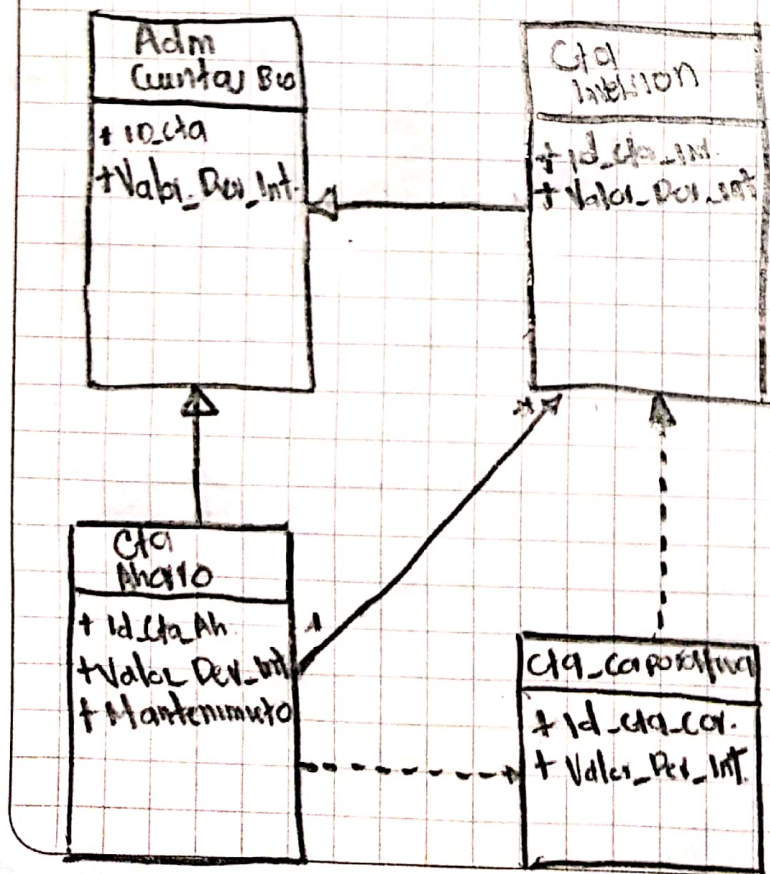 Adm
Cuentas Bco
+ ID_cta
+ Valor_Dev_Int.
Cta
Inversion
+ Id_cta_Inv.
+ Valor_Dev_Int
*
Cta
Ahorro
+ Id_Cta_Ah
+ Valor_Dev_Int
+ Mantenimiento
1
Cta_Corporativa
+ Id_cta_Cor.
+ Valor_Dev_Int.